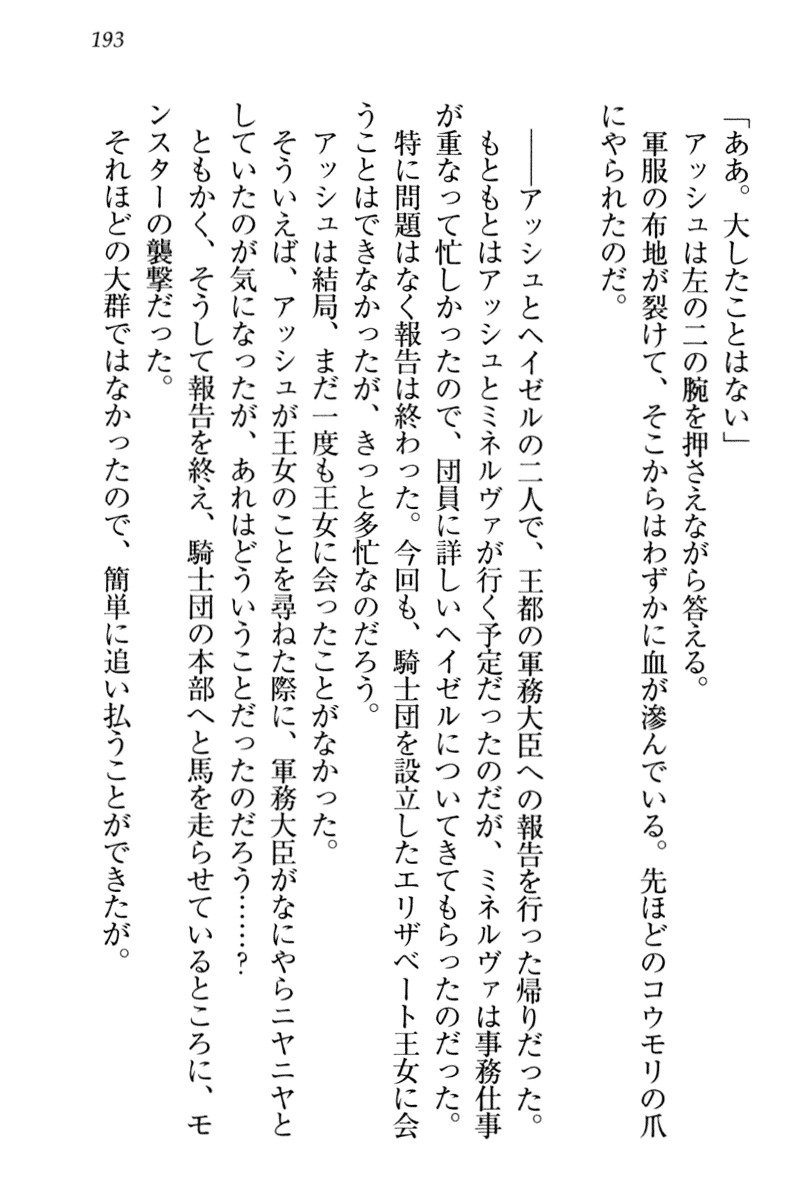 193
「ああ。大したことはない」
アッシュは左の二の腕を押さえながら答える。
軍服の布地が裂けて、そこからはわずかに血が滲んでいる。先ほどのコウモリの爪
にやられたのだ。
――アッシュとヘイゼルの二人で、王都の軍務大臣への報告を行った帰りだった。
もともとはアッシュとミネルヴァが行く予定だったのだが、ミネルヴァは事務仕事
が重なって忙しかったので、団員に詳しいヘイゼルについてきてもらったのだった。
特に問題はなく報告は終わった。今回も、騎士団を設立したエリザベート王女に会
うことはできなかったが、きっと多忙なのだろう。
アッシュは結局、まだ一度も王女に会ったことがなかった。
そういえば、アッシュが王女のことを尋ねた際に、軍務大臣がなにやらニヤニヤと
していたのが気になったが、あれはどういうことだったのだろう……?
ともかく、そうして報告を終え、騎士団の本部へと馬を走らせているところに、モ
ンスターの襲撃だった。
それほどの大群ではなかったので、簡単に追い払うことができたが。